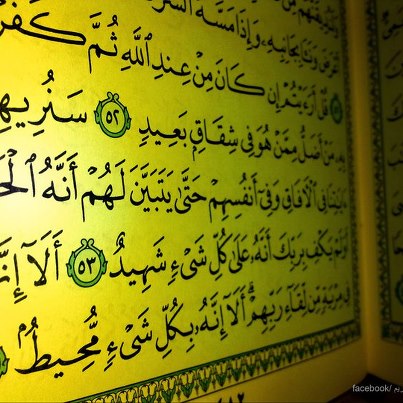 عْرَضَ وَنَـَٔا بِجَانِبِهِۦ وَإِذَا مَسَّهُ ٱلشَّرُّ
قُلْ أَرَءَيْتُمْ إِن كَانَ مِنْ عِندِ ٱللَّهِ ثُمَّ كَفَرْ
بِهِۦ مَنْ أَضَلُّ مِمَّنْ هُوَ فِى شِقَاقٍۭ بَعِيدٍ ٥٢ سَنُرِيهِ
ءَايَـٰتِنَا فِى ٱلْـَٔافَاقِ وَفِىٓ أَنفُسِهِمْ حَتَّىٰ يَتَبَيَّنَ لَهُمْ أَنَّهُ ٱلْحَ
أَوَلَمْ يَكْفِ بِرَبِّكَ أَنَّهُۥ عَلَىٰ كُلِّ شَىْءٍ شَهِيدٌ ٥٣ أَلَآ إِنَّ
فِى مِرْيَةٍ مِّن لِّقَآءِ رَبِّهِمْ ۗ أَلَآ إِنَّهُۥ بِكُلِّ شَىْءٍ مُّحِيطٌۢ
facebook/